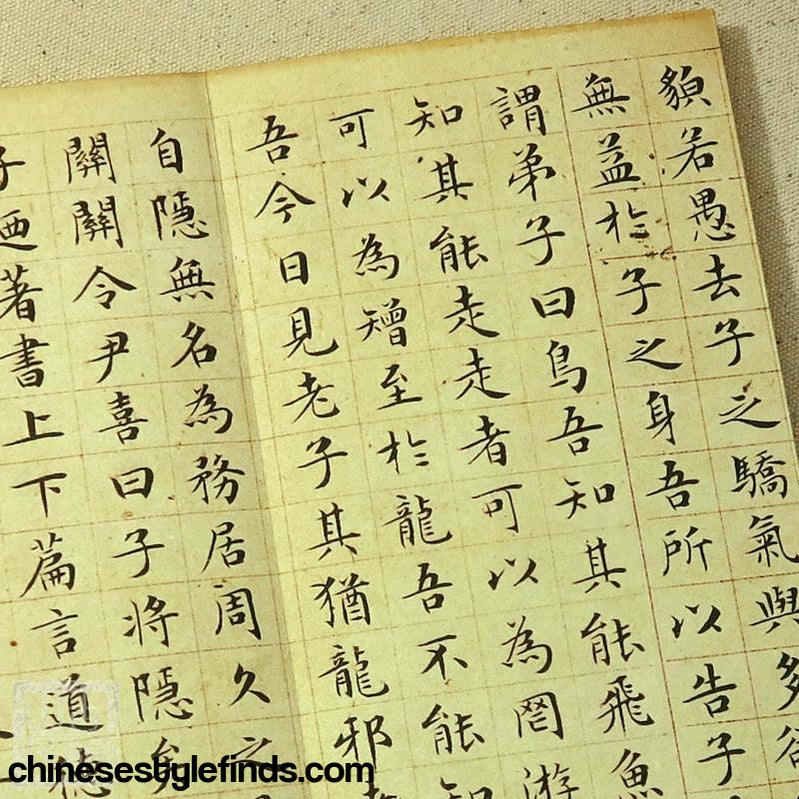 貌若愚去子之驕氣與多
無益於子之身吾所以告子
謂弟子曰鳥吾知其能飛魚
知其能走走者可以為罔游
可以為矰至於龍吾不能知
吾今日見老子其猶龍邪
自隱無名為務居周久之
關關令尹喜曰子將隱矣
子迺著書上下篇言道德
chinesestylefinds.com